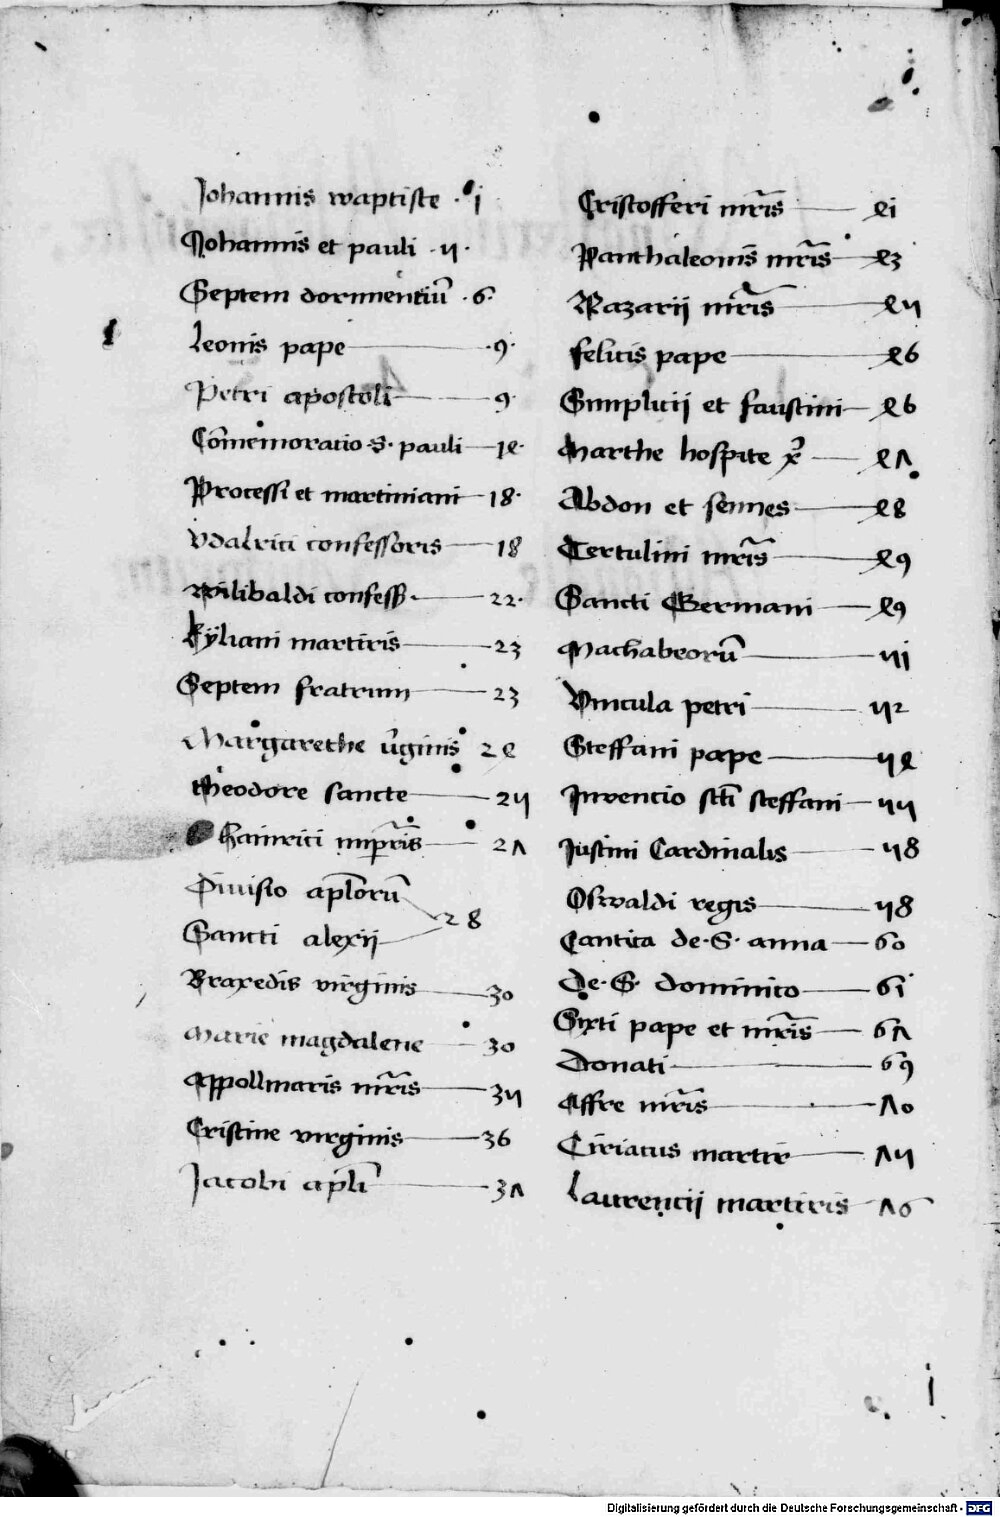 Johannis waptiste · j
Johannis et pauli · 4 ·
Septem dormentiū · 6 ·
Leonis pape 9
Petri apostoli 9
Cōmemoratio · S · pauli 14
Processi et martiniani 18
Vdalrici confessoris 18
wilibaldi confess 22
kyliani martiris 23
Septem fratrum 23
Margarethe v̄ginis 24
theodore sancte 25
hainrici impr̄is 27
Diuisio apl̄orū 28
Sancti alexij
Braxedis virginis 30
Marie magdalene 30
Appollinaris mr̄is 35
Cristine virginis 36
Jacobi apl̄i 37
Cristofferi mr̄is 41
Panthaleonis mr̄is 43
Nazarij mr̄is 45
felicis pape 46
Simplicij et faustini 46
Marthe hospite xp̄i 47
Abdon et sennes 48
Tertulini mr̄is 49
Sancti Germani 49
Machabeorū 51
Vincula petri 52
Steffani pape 54
Invencio sc̄ti steffani 55
Justini Cardinalis 58
Oswaldi regis 58
Cantica de · S · anna 60
De · S · dominico 61
Sixti pape et mr̄is 67
Donati 69
Affre mr̄is 70
Ciriacus martir 75
Laurencij martiris 76
j
Digitalisierung gefördert durch die Deutsche Forschungsgemeinschaft - DFG